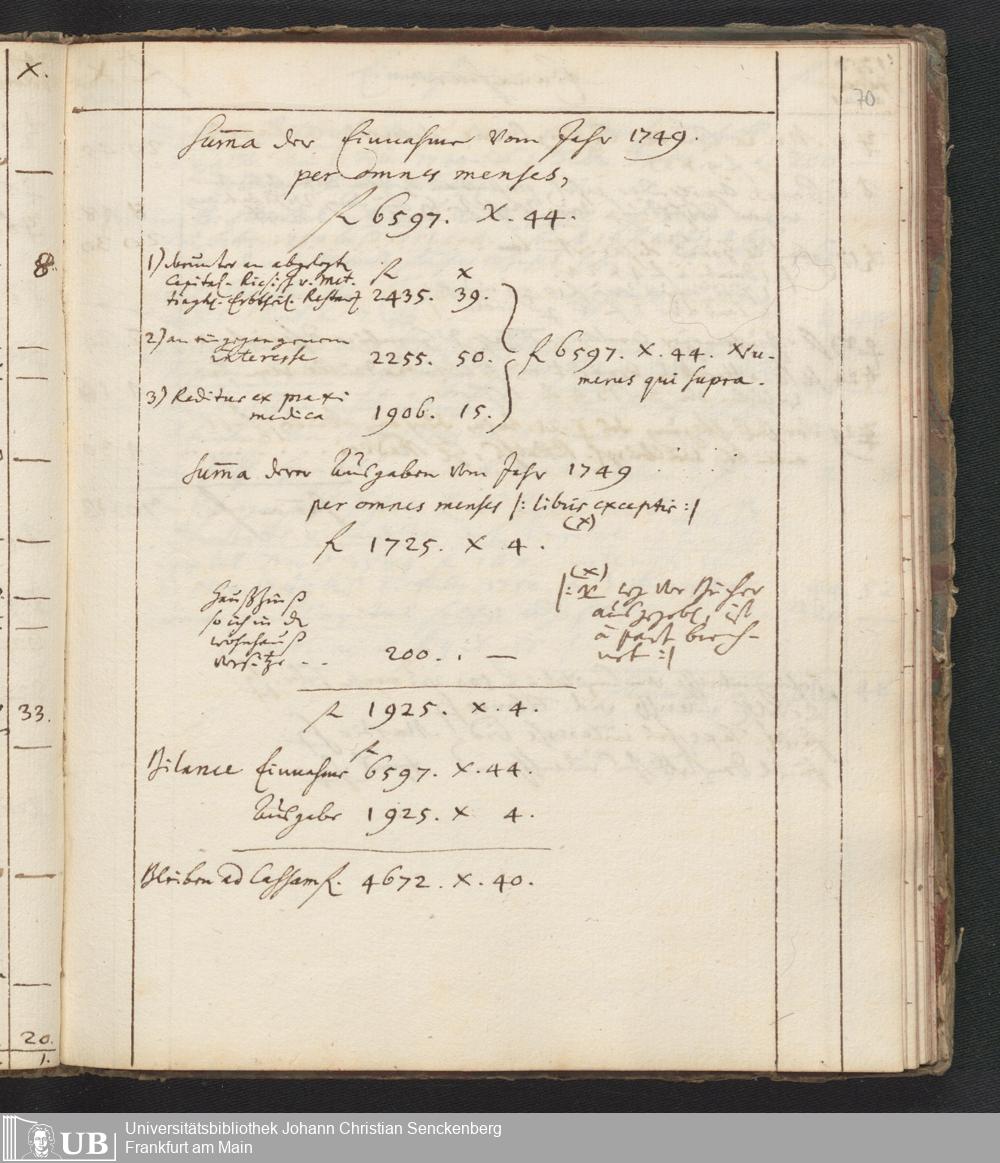 X.
8.
33.
20.
1.
70
Sum̄a der Einnahme vom Jahr 1749.
per omnes menses,
fl 6597. X. 44.
1) darunter an abgelegten fl x
Capital-
2435. 39.
2) an eingegangenem
interesse 2255. 50.
fl 6597. X. 44. Nu-
merus qui supra.
3) Reditus ex praxi
medica 1906. 15.
Sum̄a derer Ausgaben vom Jahr 1749
per omnes menses |: libris exceptis :|
(x)
fl 1725. X 4.
(x)
|: vor Bücher
ausgegeben, ist
à part berech-
net :|
Haußzinß
so ich in der
wohnhauß
versitze - . 200. . —
fl 1925. X. 4.
Bilance Einnahme fl 6597. X. 44.
Ausgabe 1925. X 4.
Bleiben ad Cassam fl. 4672. X. 40.
UB
Universitätsbibliothek Johann Christian Senckenberg
Frankfurt am Main